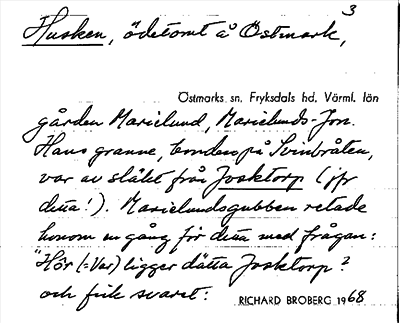 3
Husken, ödetomt å Östmark,
Östmarks sn, Fryksdals hd, Värml. län
gården Marielund, Marielunds-Jon.
Hans granne, bonden på Svinbråten,
var av släkt från Josktorp (jfr
detta!). Marielundsgubben retade
honom en gång för detta med frågan:
"Hör (=Var) ligger dätta Josktorp?
och fick svaret:
RICHARD BROBERG 1968